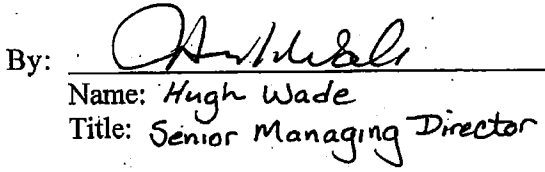 By:
Name: Hugh Wade
Title: Senior Managing Director